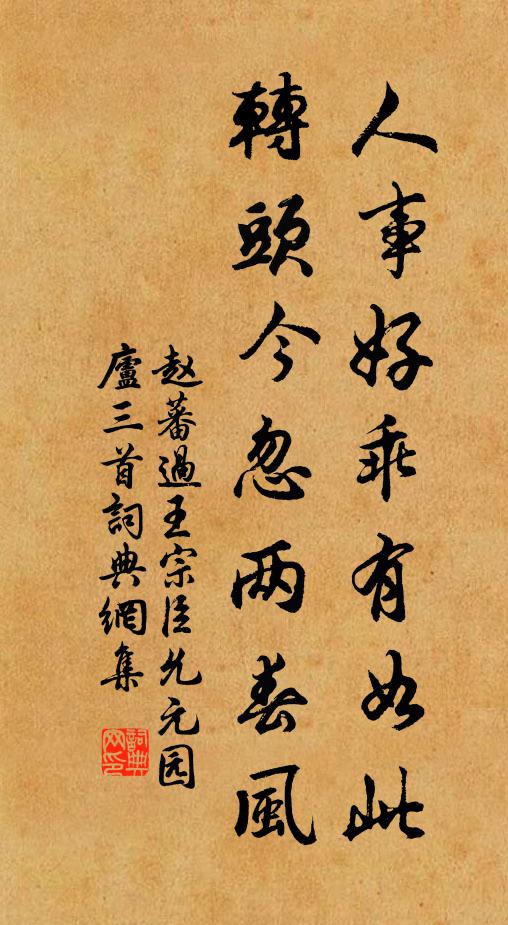 人事好乖有如此
轉頭今忽两春風
赵蕃過王宗臣允元园
廬三首詞典網集
詞典网印